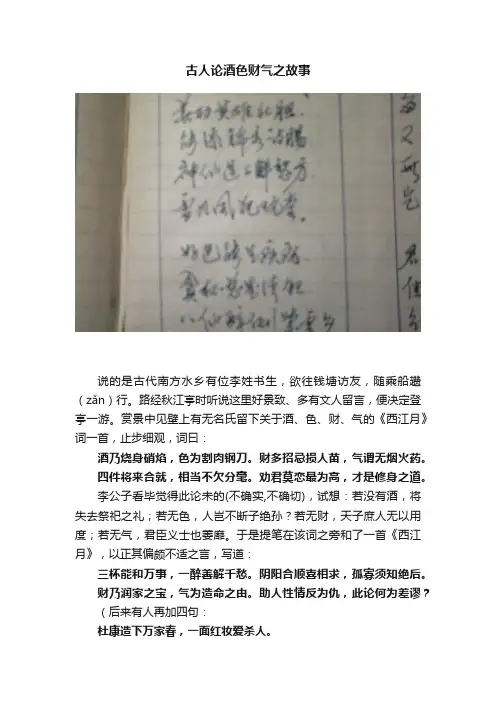 古人论酒色财气之故事
善助英雄壮胆.
能添锦绣诗肠
神仙造下解愁方
雪月风花玩赏.
好色能生疾病
说的是古代南方水乡有位李姓书生，欲往钱塘访友，随乘船趱
（zǎn）行。路经秋江亭时听说这里好景致、多有文人留言，便决定登
亭一游。赏景中见壁上有无名氏留下关于酒、色、财、气的《西江月》
词一首，止步细观，词曰：
酒乃烧身硝焰，色为割肉钢刀。财多招忌损人苗，气谓无烟火药。
四件将来合就，相当不欠分毫。劝君莫恋最为高，才是修身之道。
李公子看毕觉得此论未的(不确实,不确切)，试想：若没有酒，将
失去祭祀之礼；若无色，人岂不断子绝孙？若无财，天子庶人无以用
度；若无气，君臣义士也萎靡。于是提笔在该词之旁和了一首《西江
月》，以正其偏颇不适之言，写道：
三杯能和万事，一醉善解千愁。阴阳合顺喜相求，孤寡须知绝后。
财乃润家之宝，气为造命之由。助人性情反为仇，此论何为差谬？
（后来有人再加四句：
杜康造下万家春，一面红妆爱杀人。